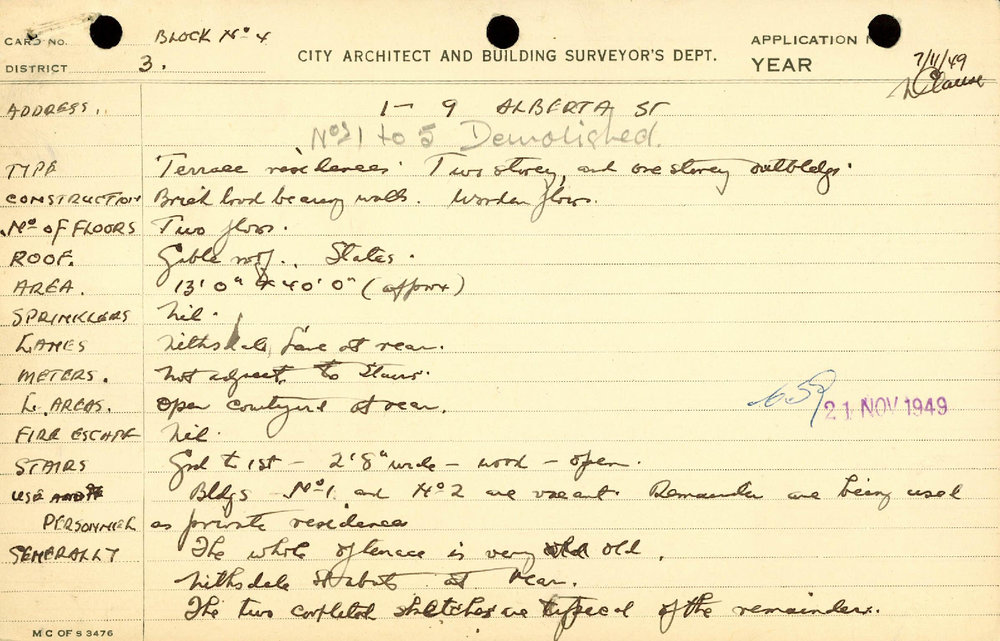 CARD No. BLOCK No 4
CITY ARCHITECT AND BUILDING SURVEYOR'S DEPT.
APPLICATION N
DISTRICT 3.
YEAR 7/11/49
ADDRESS.. 1 - 9 ALBERTA ST
Nos 1 to 5 Demolished.
TYPE Terrace residences Two storey, and one storey outbldgs.
CONSTRUCTION Brick load bearing walls. Wooden floors.
No OF FLOORS Two floors.
ROOF. Gable roof., Slates.
AREA. 13' 0" x 40' 0" (approx)
SPRINKLERS Nil.
LANES Nithsdale, Lane at rear.
METERS. Not adjacent to Stairs.
L. AREAS. Open courtyard at rear.
21 NOV 1949
FIRE ESCAPE Nil.
STAIRS Grd to 1st - 2' 8" wide - wood - open.
USE AND Bldgs No 1. and No 2 are vacant. Remainder are being used
PERSONNEL as private residences
GENERALLY The whole of terrace is very old.
Nithsdale St abuts at rear.
The two completed sketches are typical of the remainder.
M C OF S 3476